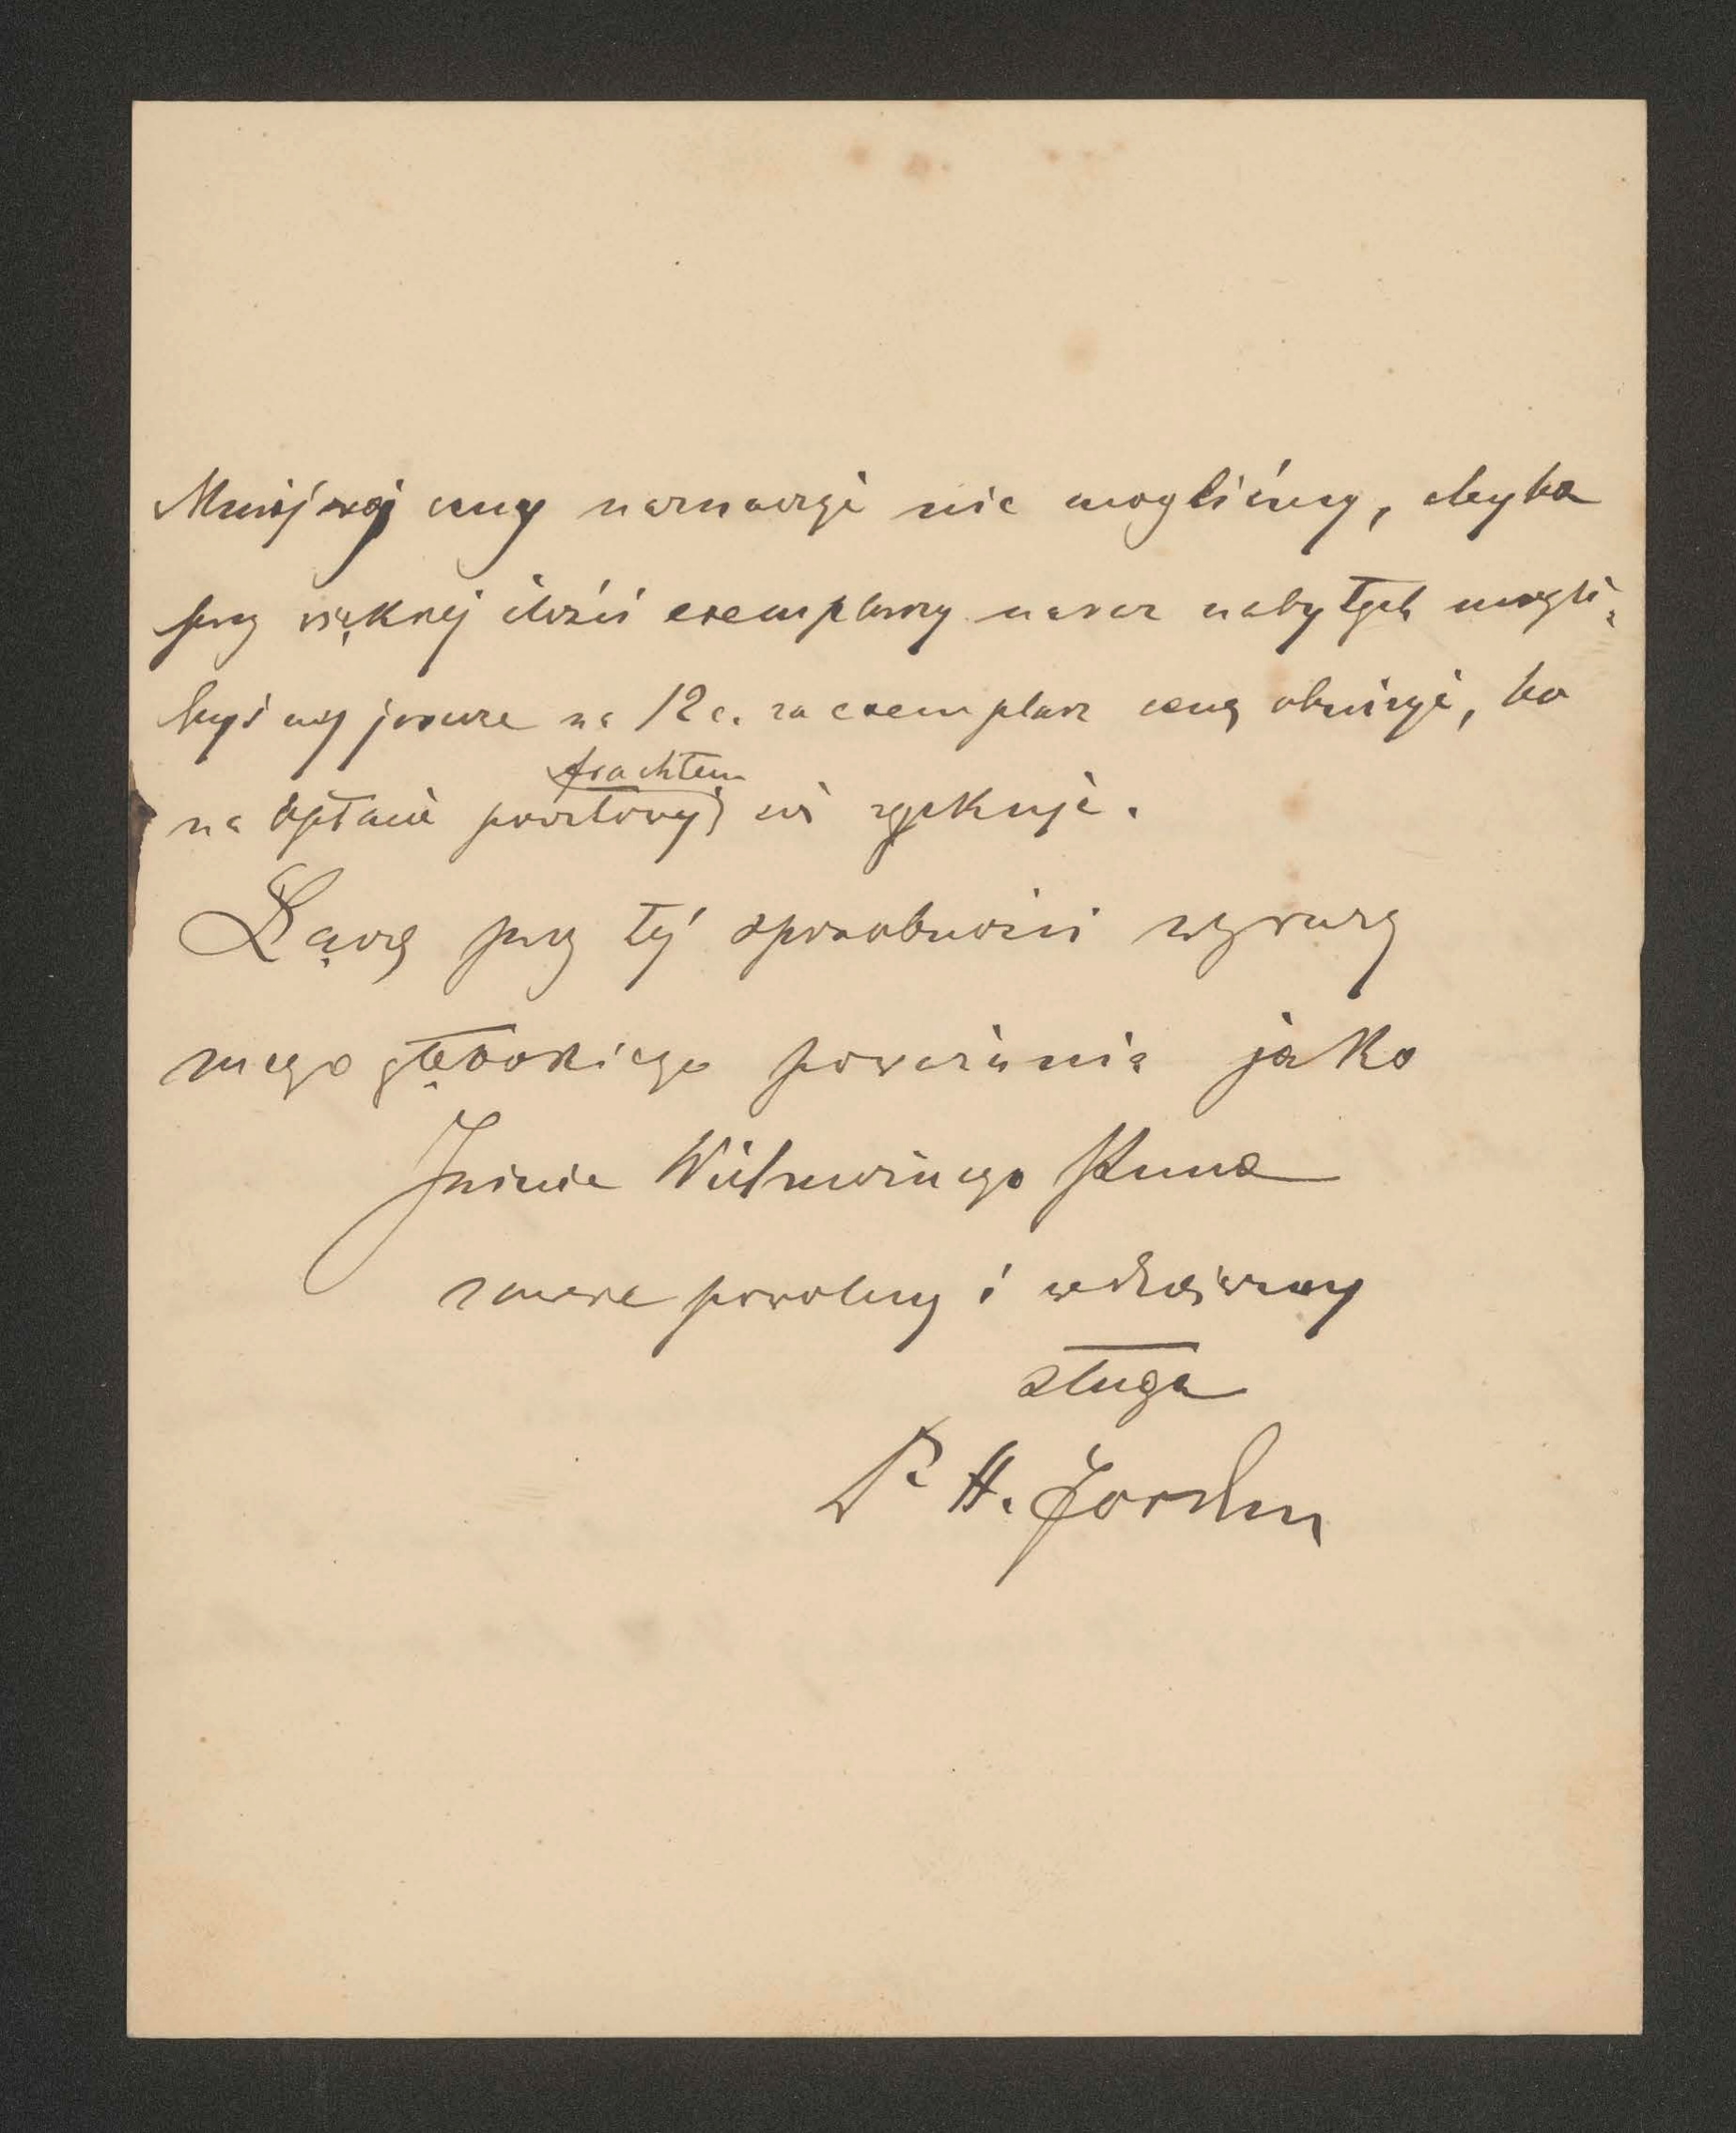 Mniejszej ceny naznaczyć nie mogliśmy, chyba
przy większej ilości exemplarzy naraz nabytych mogli-
byśmy jeszcze na 12 c. za exemplarz cenę obniżyć, bo
frachtem
na opłacie pocztowej się zyskuje.
Łączę przy tej sposobności wyrazy
mego głębokiego poważania jako
Jaśnie Wielmożnego Pana
zawsze powolny i wdzięczny
sługa
Dr H. Jordan